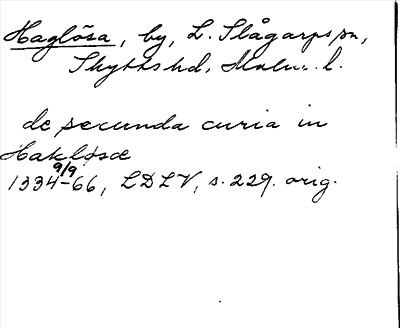 Haglösa, by, L. Slågarps sn,
Skytts hd, Malm. l.
de secunda curia in
Hakløsæ
9/9
1334-66, LDLV, s. 229. orig.